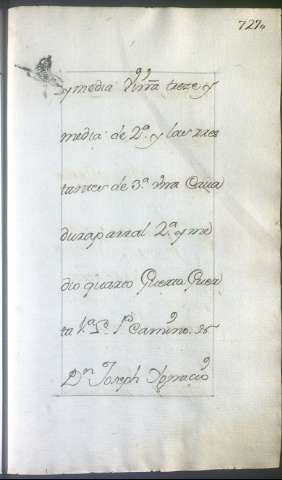 727.
y media Viña treze y
media de 2ª. y las res
tantes de 3ª. Una Casa
duraparral 2ª. y me
dio quarto Guerta
ta 1ª. Camino
Dn. Joseph Ygnacio